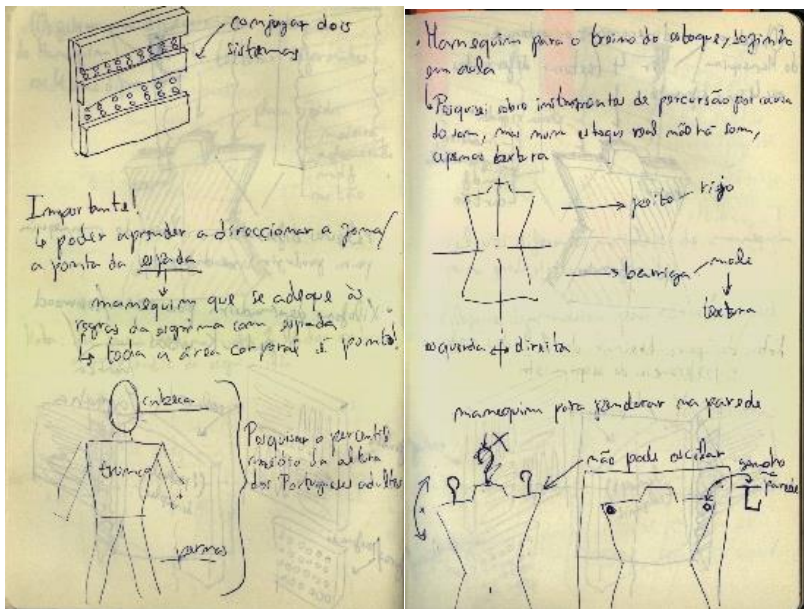 conjugar dois
sistemas
Importante!
↳ poder aprender a direccionar a arma/
a ponta da espada
manequim que se adeque às
regras da esgrima com espada
↳ toda a área corporal é ponto!
cabeça
tronco
pernas
Pesquisar o percentil
médio da altura
dos Portugueses adultos
• Manequim para o treino do estoque, sozinho
em aula
↳ Pesquisei sobre instrumentos de percursão por causa
do som, mas num estoque real não há som,
apenas textura
peito rijo
barriga mole
textura
esquerda direita
manequim para pendurar na parede
não pode oscilar
gancho
parede